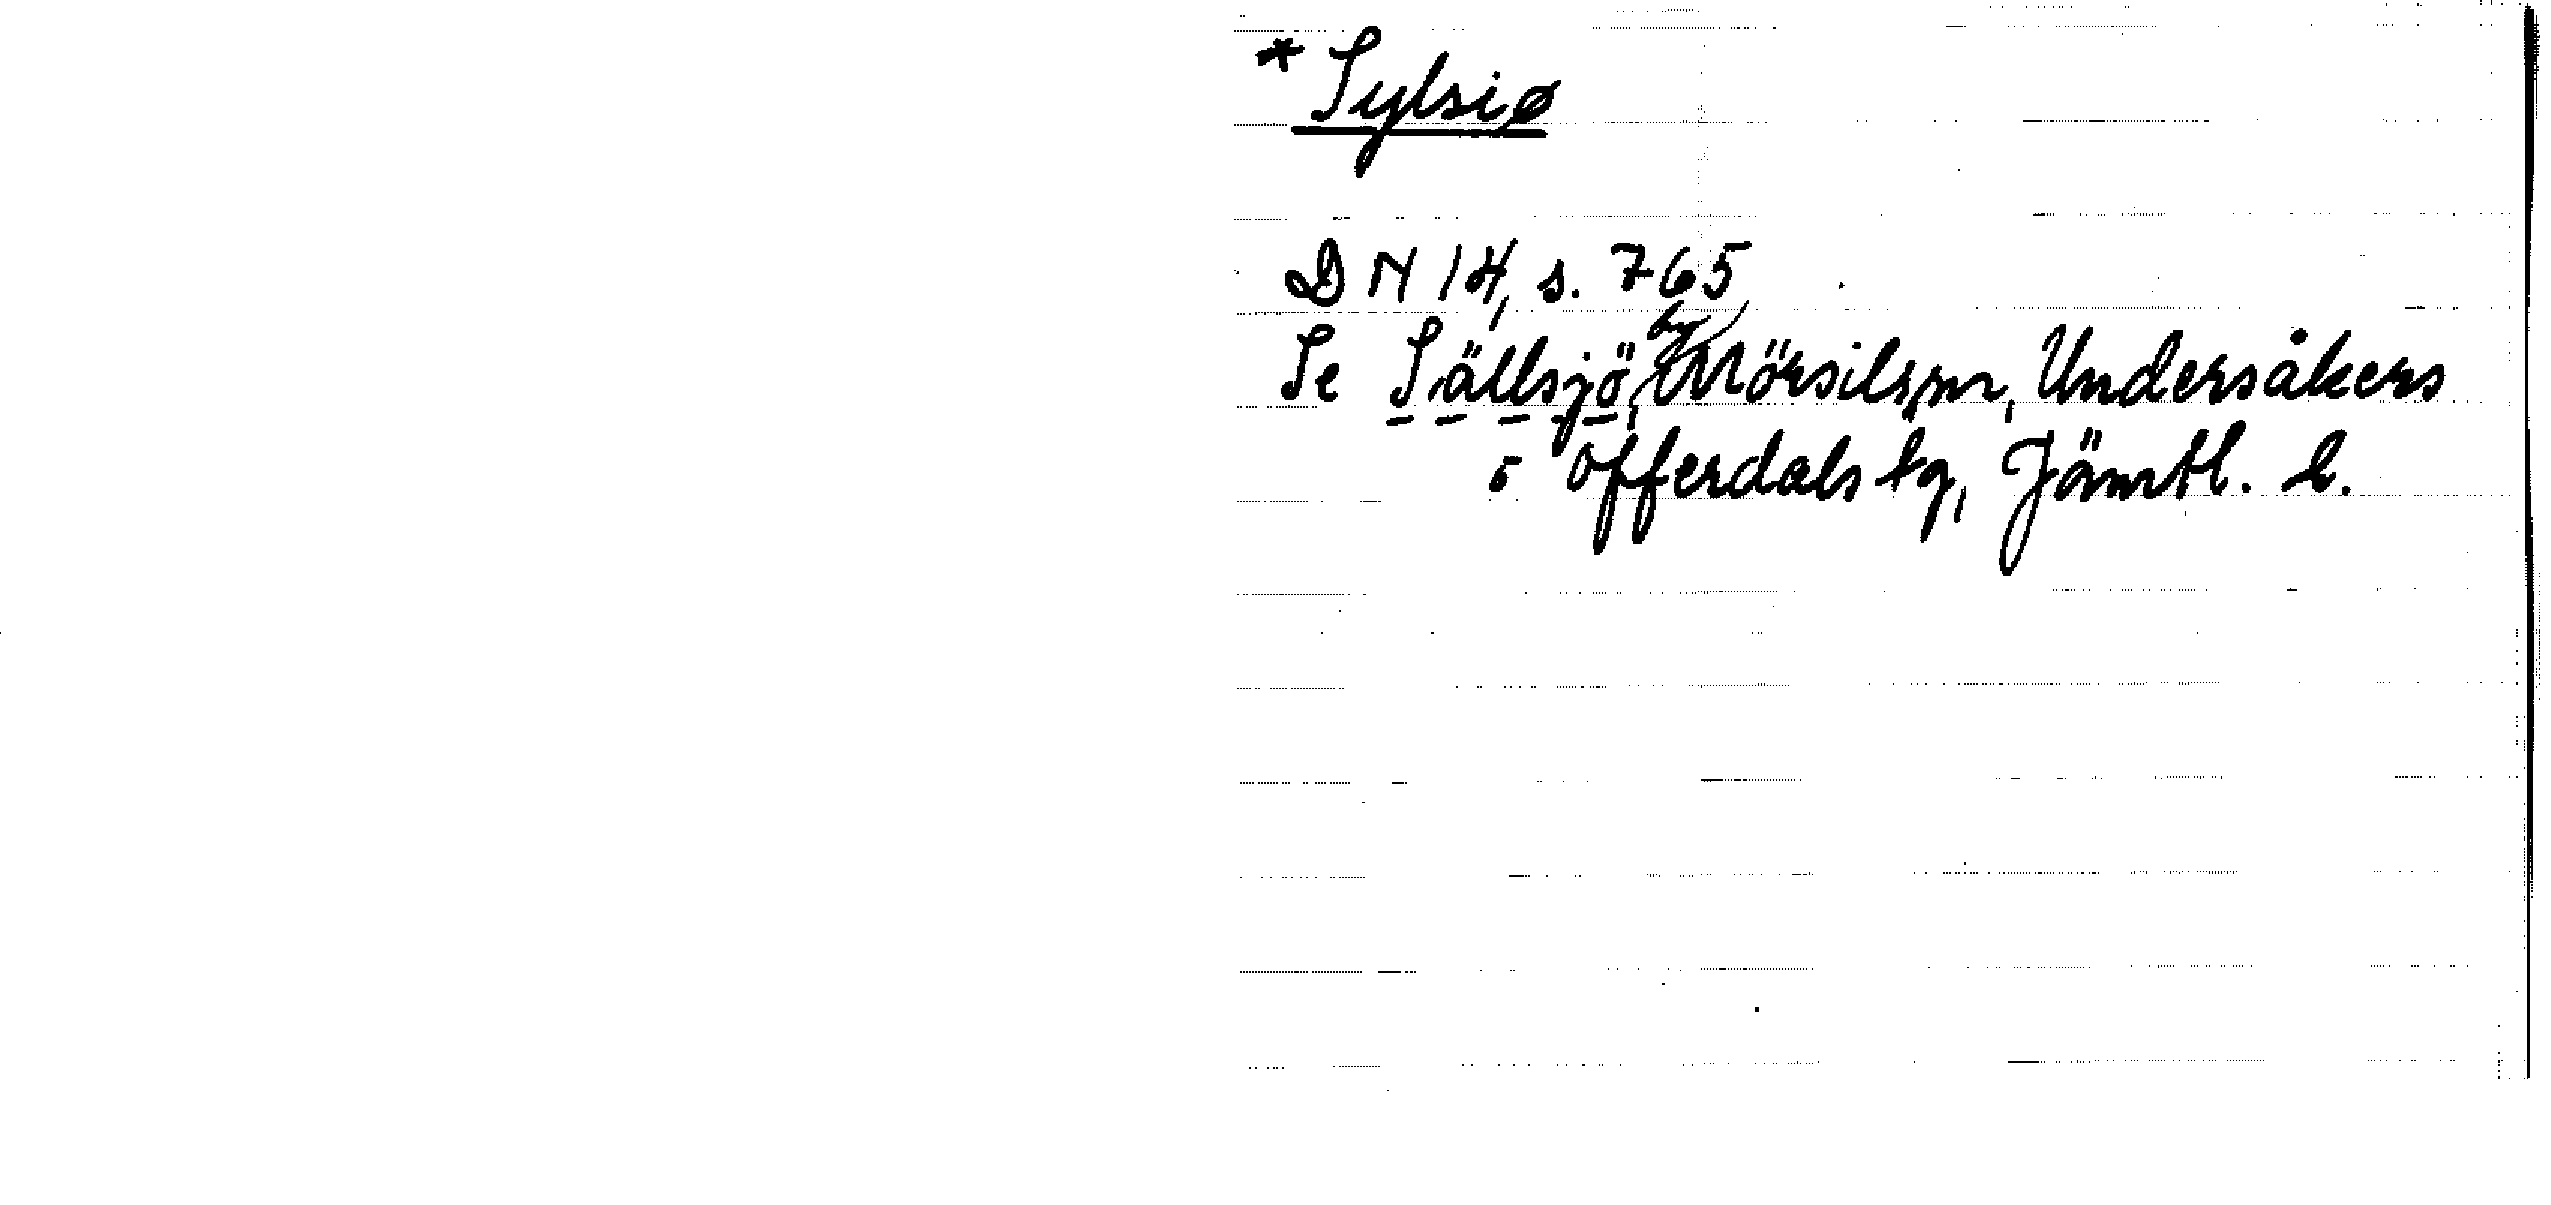 * Sylsiø
DN 14, s. 765
Se Sällsjö, by, Mörsils sn, Undersåkers
o Offerdals tg, Jämtl. l.